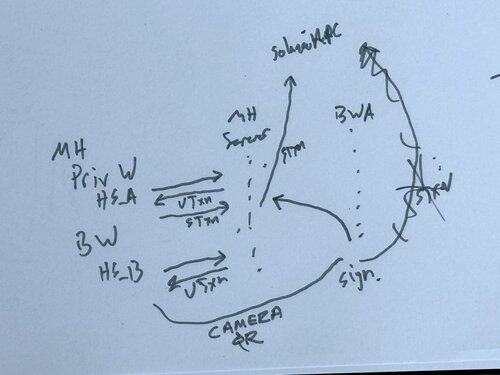 submitAAC
MH
Server
BWA
STxn
MH
Priv W
HS_A
UTxn
STxn
BW
HS_B
UTxn
sign.
CAMERA
QR